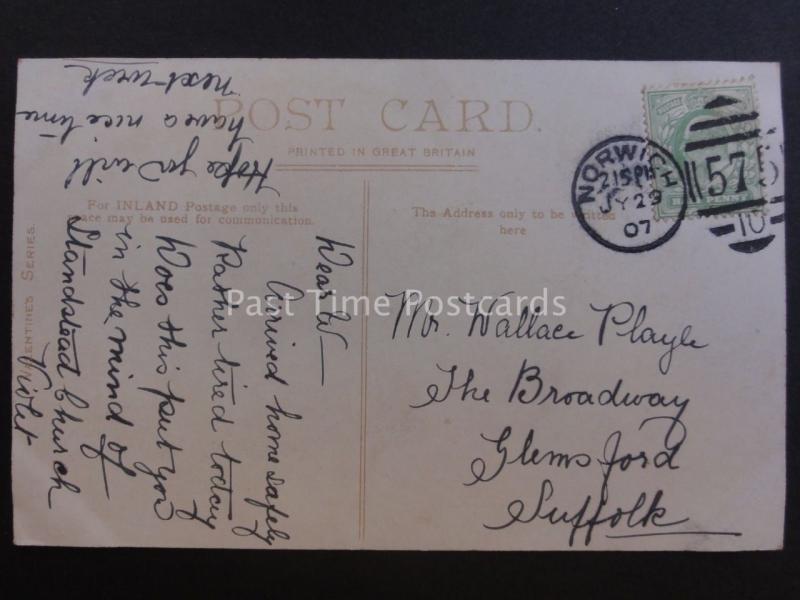 POST CARD.
PRINTED IN GREAT BRITAIN
For INLAND Postage only this
space may be used for communication.
The Address only to be written
here
VALENTINE'S SERIES.
NORWICH
2 15 PM
JY 29
07
575
10
Mr. Wallace Playle
The Broadway
Glemsford
Suffolk
Dear W—
Arrived home safely
Rather tired today
Does this put you
in the mind of
Standstead Church
Violet
Hope you will
have a nice time
next week
Past Time Postcards